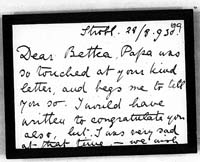 Strobl. 28/8.930.
Dear Bettca, Papa was
so touched at your kind
letter, and begs me to tell
you so. I would have
written to congratulate you
also, but I was very sad
at that time – we